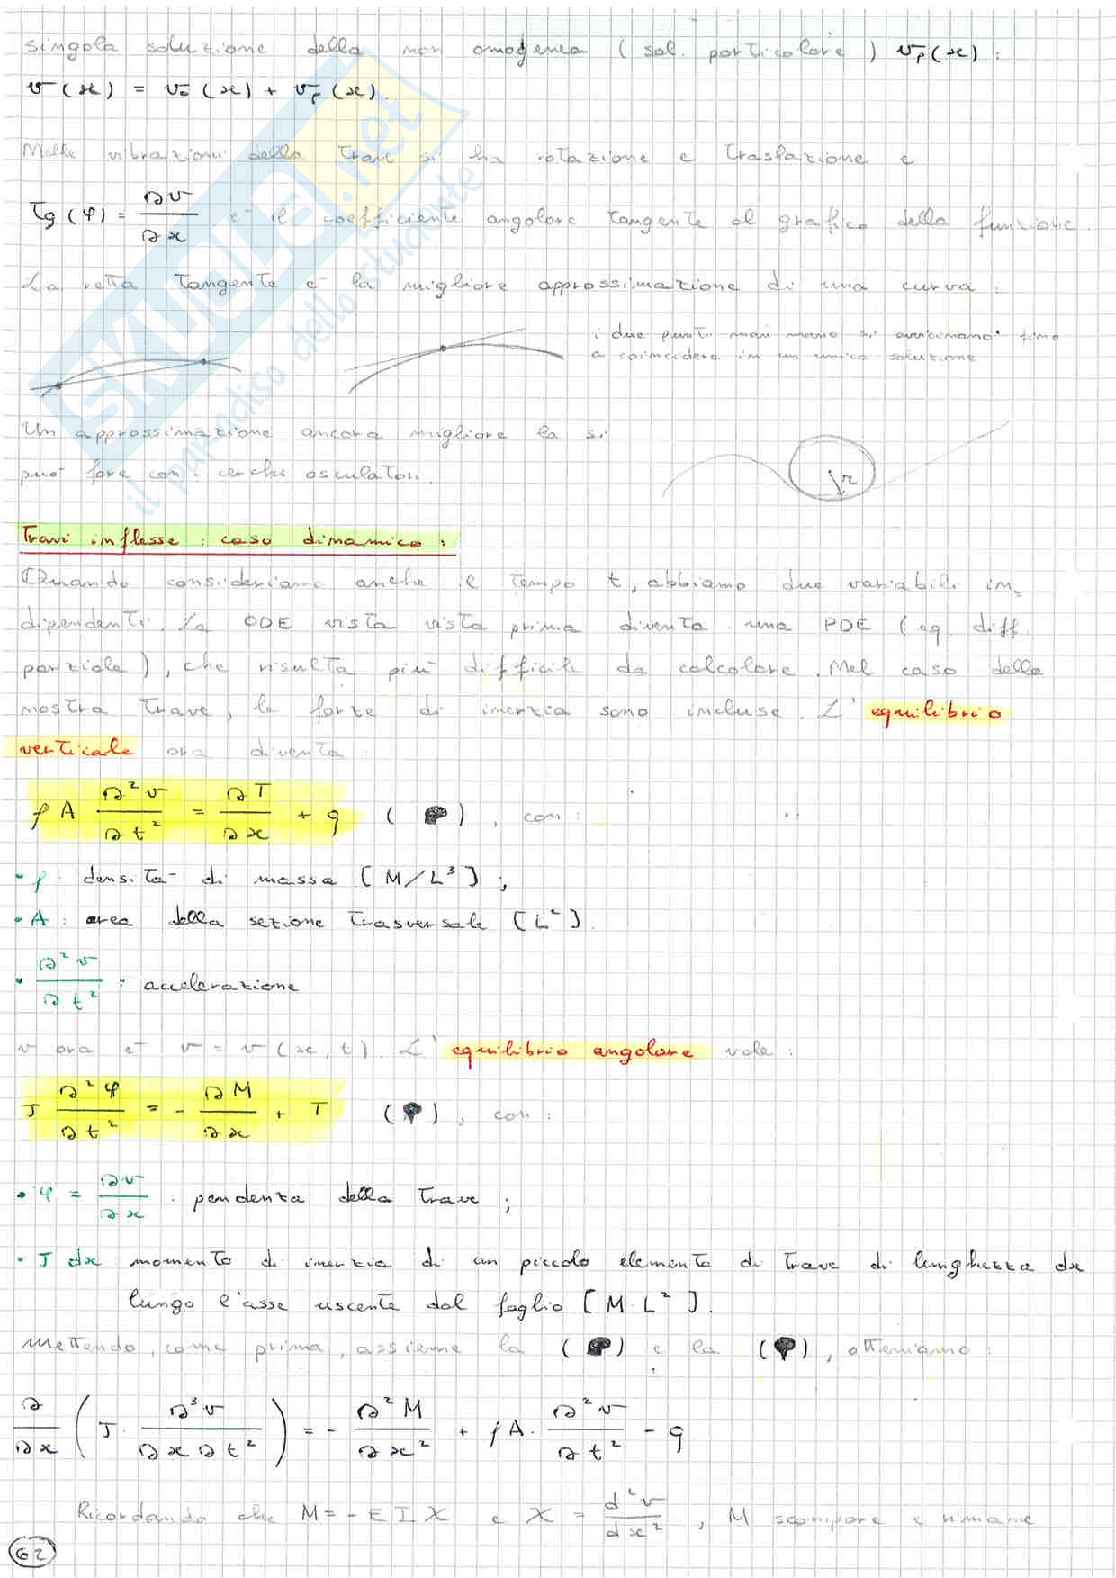 singola soluzione della non omogenea (sol. particolare) vp(x):
v(x) = vo(x) + vp(x).
Nelle vibrazioni della trave si ha rotazione e traslazione e
Tg(φ) = ∂v/∂x è il coefficiente angolare tangente al grafico della funzione.
La retta tangente è la migliore approssimazione di una curva:
i due punti man mano si avvicinano fino
a coincidere in un unica soluzione
Un approssimazione ancora migliore la si
può fare con i cerchi osculatori.
r
Travi inflesse: caso dinamico:
Quando consideriamo anche il tempo t, abbiamo due variabili in-
dipendenti. La ODE vista vista prima diventa una PDE (eq. diff.
parziale), che risulta più difficile da calcolare. Nel caso della
nostra trave, le forze di inerzia sono incluse. L'equilibrio
verticale ora diventa
ρA ∂²v/∂t² = ∂T/∂x + q ( ), con:
• ρ: densità di massa [M/L³];
• A: area della sezione trasversale [L²].
• ∂²v/∂t²: accelerazione
v ora è v = v(x,t). L'equilibrio angolare vale:
J ∂²φ/∂t² = - ∂M/∂x + T ( ), con:
• φ = ∂v/∂x: pendenza della trave;
• J dx momento di inerzia di un piccolo elemento di trave di lunghezza dx
lungo l'asse uscente dal foglio [M·L²].
Mettendo, come prima, assieme la ( ) e la ( ), otteniamo:
∂/∂x (J · ∂³v/∂x∂t²) = - ∂²M/∂x² + ρA · ∂²v/∂t² - q
Ricordando che M = -EIX e X = d²v/dx², M scompare e rimane
62
SKUOLA.net
il paradiso dello studente